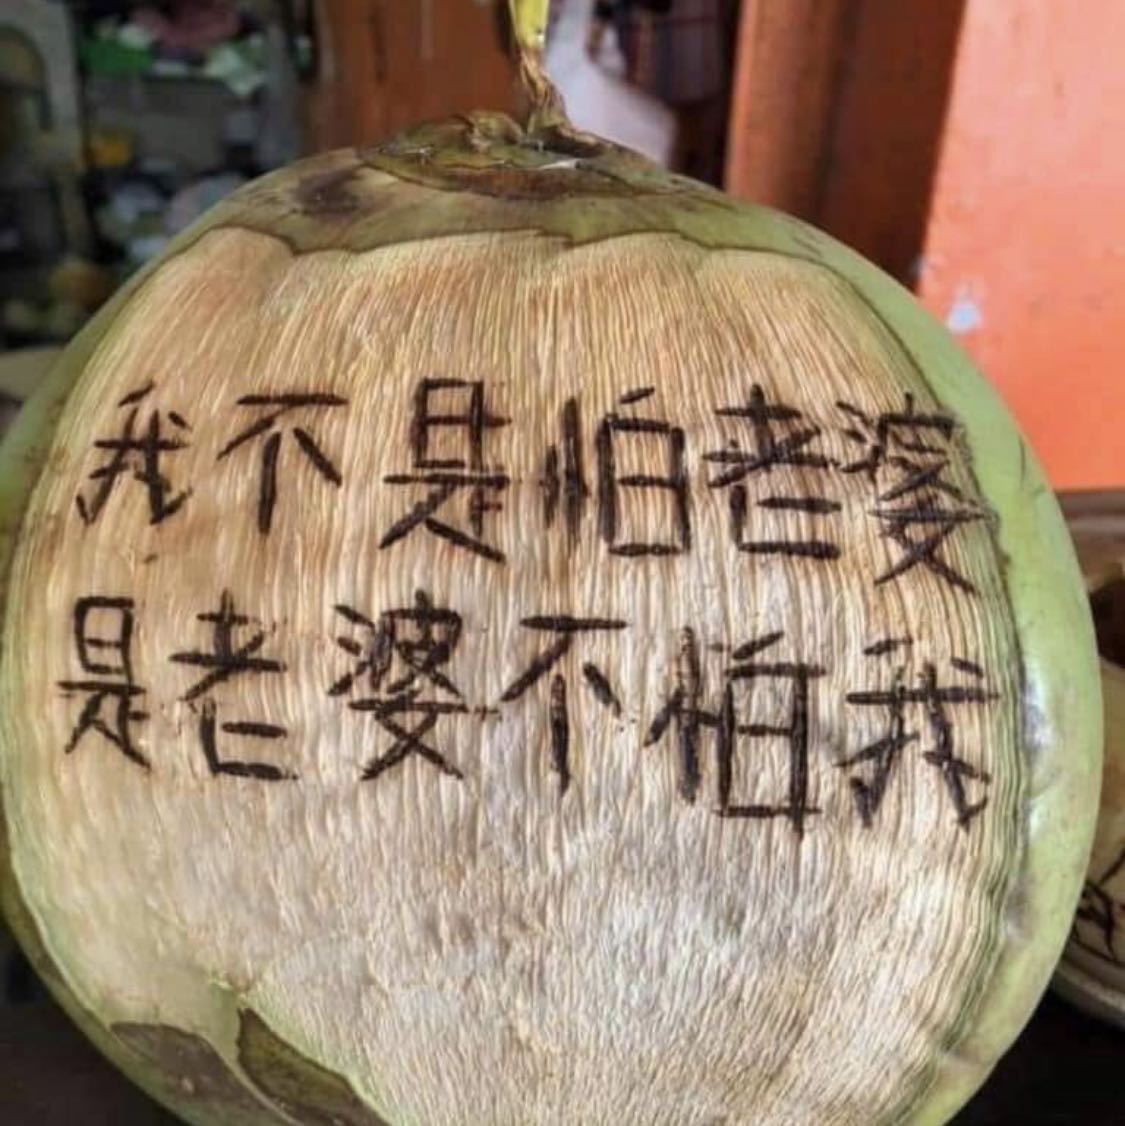 我不是怕老婆
是老婆不怕我